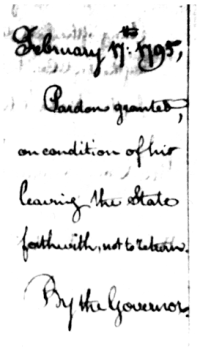 February 17th: 1795,
Pardon granted,
on condition of his
leaving the State
forthwith, not to return.
By the Governor.